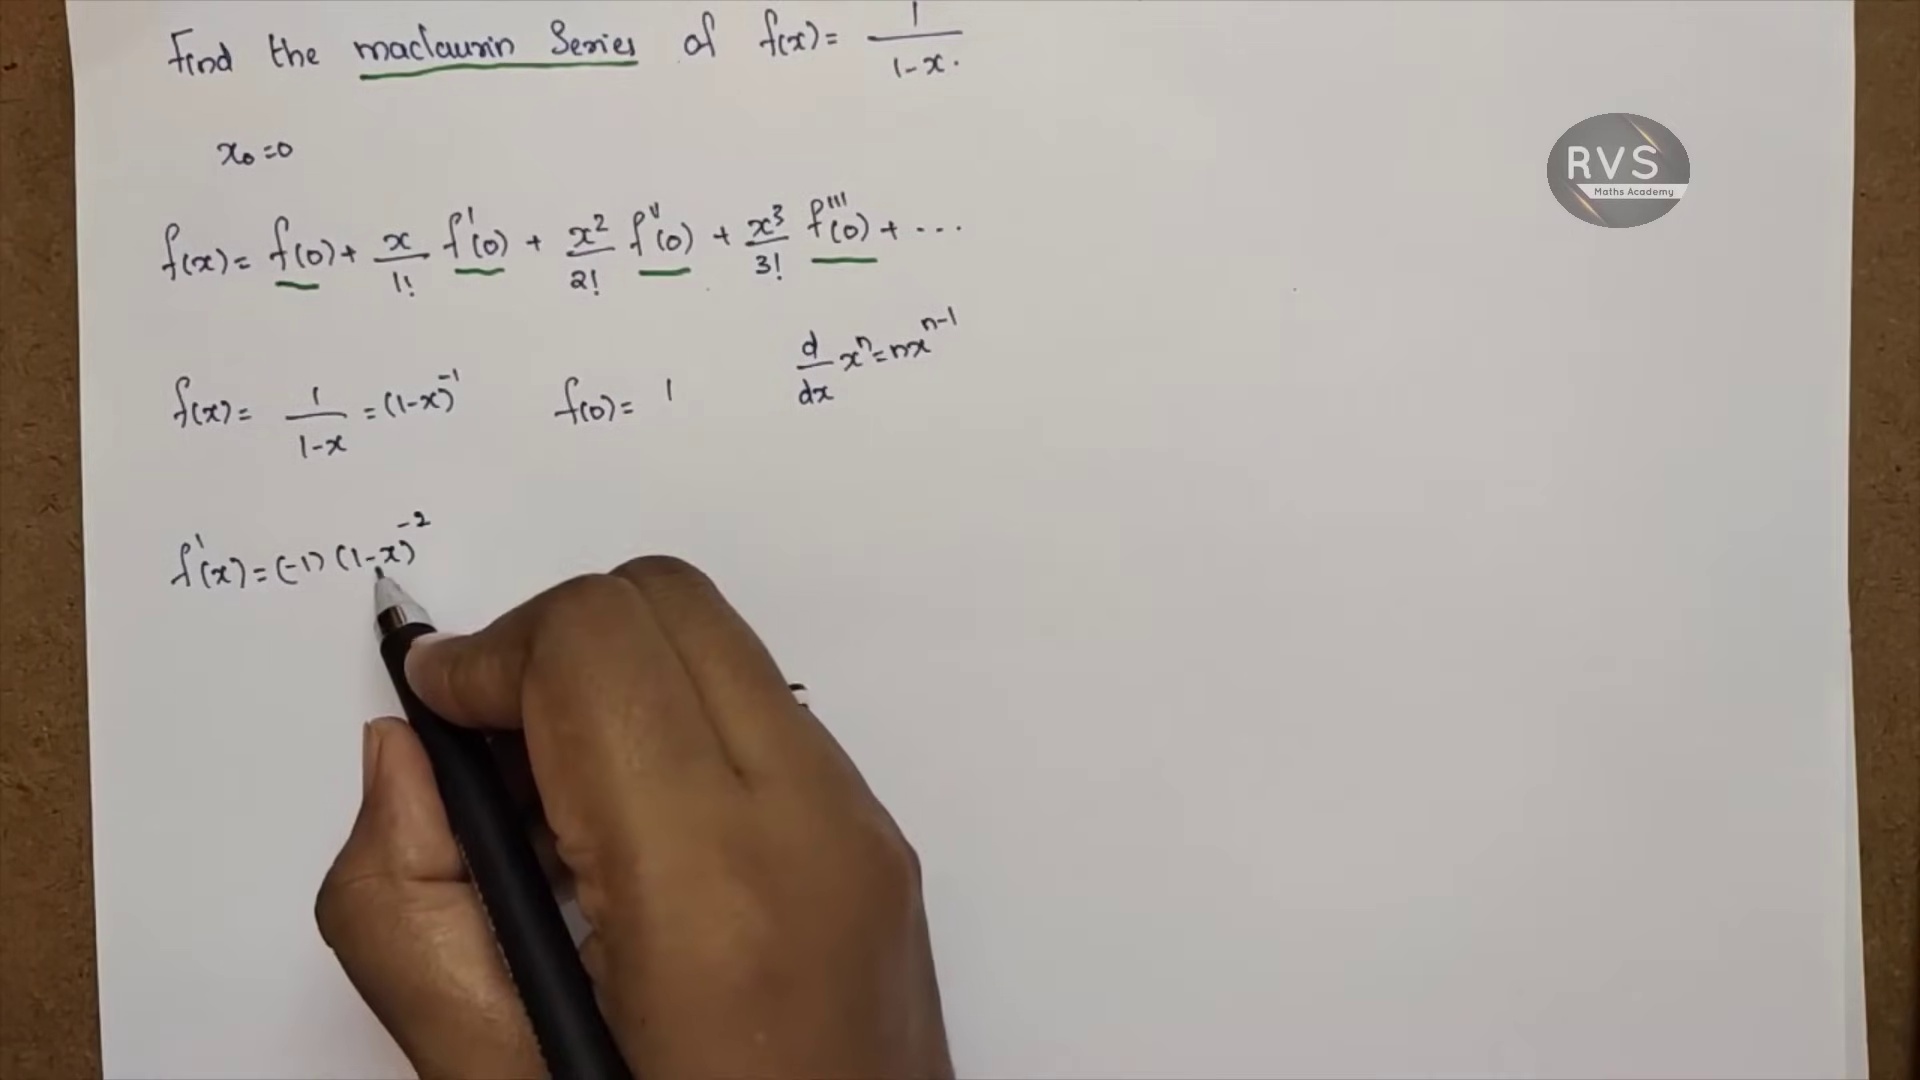 Find the maclaurin Series of f(x) = 1/1-x.
RVS
Maths Academy
x₀=0
f(x) = f(0) + x/1! f'(0) + x²/2! f''(0) + x³/3! f'''(0) + ...
d/dx xⁿ = nxⁿ⁻¹
f(x) = 1/1-x = (1-x)⁻¹ f(0) = 1
f'(x) = (-1) (1-x)⁻²